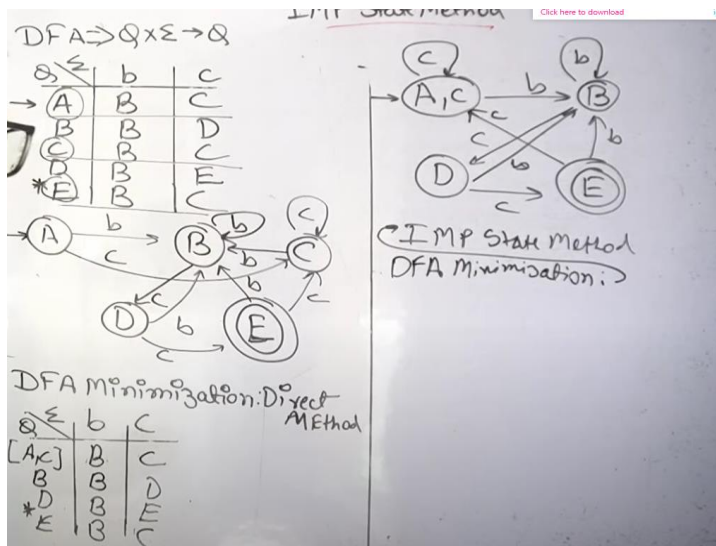 IMP State Method
Click here to download
DFA⇒Q×Σ→Q
Q Σ b c
→ A B C
B B D
C B C
D B E
*E B C
A b B b C c
c b
c b
D b E c
c
DFA Minimization: Direct
MEthod
Q Σ b C
[A,C] B C
B B D
D B E
*E B C
c b
A,C b B
c
c b b
D c E
IMP State Method
DFA Minimization: